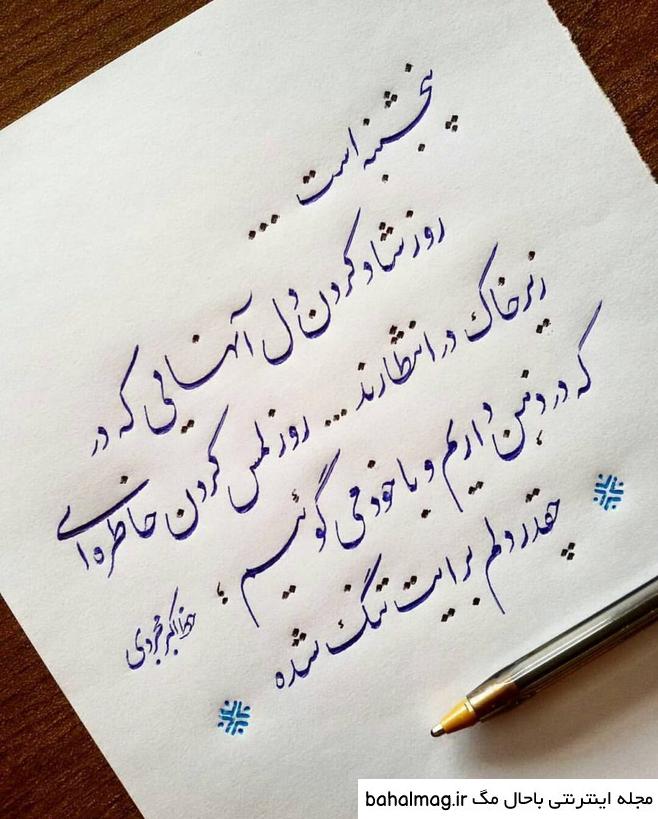 پنجشنبه است ...
روز شاد کردن دل آنهایی که در
زیر خاک در انتظارند... روز لمس کردن خاطره‌ای
که در ذهن داریم و با خود می گوئیم ؛
چقدر دلم برایت تنگ شده
مجله اینترنتی باحال مگ bahalmag.ir